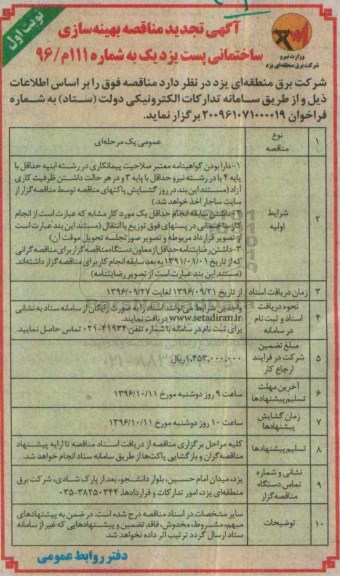 نوبت اول
آگهی تجدید مناقصه بهینه‌سازی
ساختمانی پست یزد یک به شماره ۱۱۱م/۹۶
وزارت نیرو
شرکت برق منطقه‌ای یزد
شرکت برق منطقه‌ای یزد در نظر دارد مناقصه فوق را بر اساس اطلاعات
ذیل و از طریق سامانه تدارکات الکترونیکی دولت (ستاد) به شماره
فراخوان ۲۰۰۹۶۱۰۷۱۰۰۰۰۱۹ برگزار نماید.
۱ نوع مناقصه عمومی یک مرحله‌ای
۲ شرایط اولیه
۱- دارا بودن گواهینامه معتبر صلاحیت پیمانکاری در رشته ابنیه حداقل با
پایه ۴ یا در رشته نیرو حداقل با پایه ۴ و در هر حالت داشتن ظرفیت کاری
آزاد (مستند این بند در روز گشایش پاکتهای مناقصه توسط مناقصه‌گزار از
سایت ساجار اخذ خواهد شد)
۲- داشتن سابقه انجام حداقل یک مورد کار مشابه که عبارت است از انجام
کار ساختمانی در پستهای فوق توزیع یا انتقال (مستند این بند عبارت است
از تصویر قرارداد مربوطه و تصویر صورتجلسه تحویل موقت آن)
۳- داشتن رضایتنامه حداقل از معاون دستگاه مناقصه‌گزار برای مناقصه‌گرانی
که از تاریخ ۱۳۹۱/۰۸/۰۱ به بعد سابقه انجام کار برای مناقصه‌گزار داشته‌اند.
(مستند این بند عبارت است از تصویر رضایتنامه)
۳ زمان دریافت اسناد از تاریخ ۱۳۹۶/۰۹/۲۱ لغایت ۱۳۹۶/۰۹/۲۷
۴ نحوه دریافت اسناد و ثبت نام در سامانه
واجدین شرایط می‌توانند اسناد را به صورت رایگان از سامانه ستاد به نشانی
www.setadiran.ir دریافت نمایند.
برای ثبت نام در سامانه با شماره تلفن ۴۱۹۳۴-۰۲۱ تماس حاصل نمایید.
۵ مبلغ تضمین شرکت در فرایند ارجاع کار ۱,۴۵۳,۰۰۰,۰۰۰ ریال
۶ آخرین مهلت تسلیم پیشنهادها ساعت ۹ روز دوشنبه مورخ ۱۳۹۶/۱۰/۱۱
۷ زمان گشایش پیشنهادها ساعت ۱۰ روز دوشنبه مورخ ۱۳۹۶/۱۰/۱۱
۸ تسلیم پیشنهادها
کلیه مراحل برگزاری مناقصه از دریافت اسناد مناقصه تا ارایه پیشنهاد
مناقصه‌گران و بازگشایی پاکت‌ها از طریق سامانه ستاد انجام خواهد شد.
۹ نشانی و شماره تماس دستگاه مناقصه‌گزار
یزد، میدان امام حسین، بلوار دانشجو، بعد از پارک شادی، شرکت برق
منطقه‌ای یزد، امور تدارکات و قراردادها، ۳۸۲۵۰۳۴۴-۰۳۵
۱۰ توضیحات
سایر مشخصات در اسناد مناقصه درج شده است. در ضمن به پیشنهادهای
مبهم، مشروط، مخدوش، فاقد تضمین و پیشنهادهایی که غیر از سامانه
ستاد ارسال گردد ترتیب اثر داده نخواهد شد.
دفتر روابط عمومی